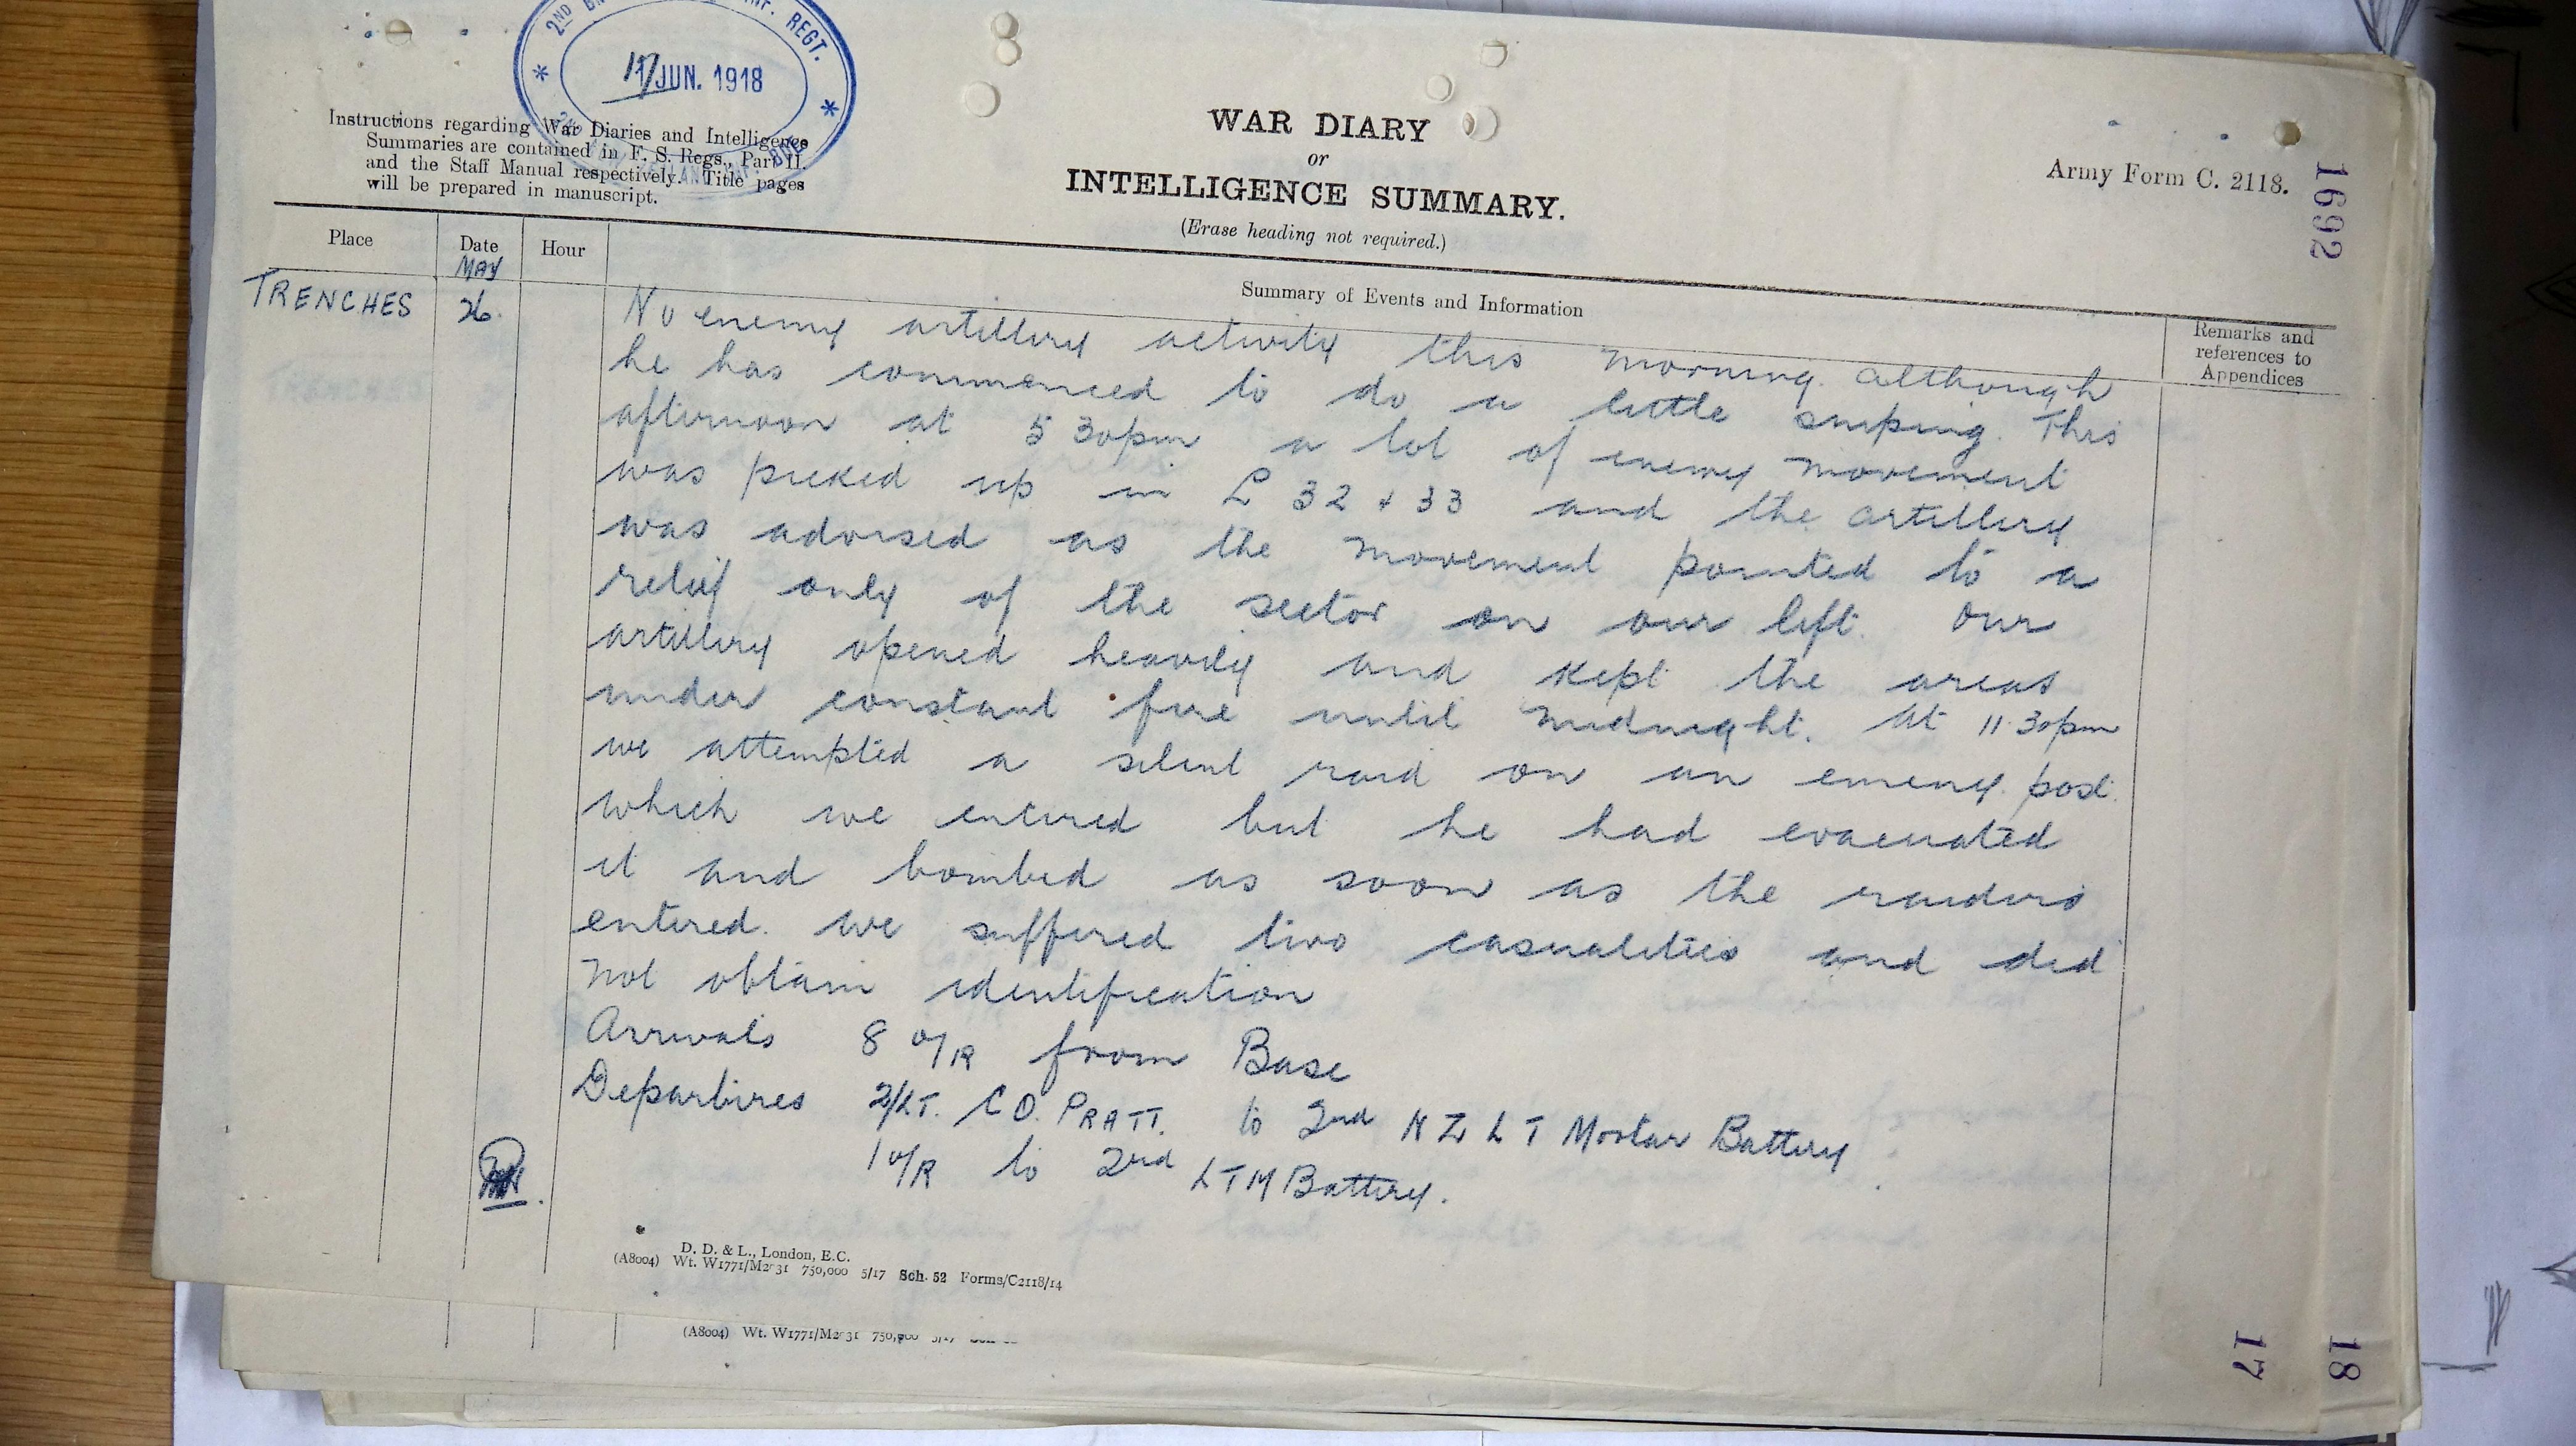 2ND
INF. REGT.
* 17 JUN. 1918 *
Instructions regarding War Diaries and Intelligence
Summaries are contained in F. S. Regs., Part II.
and the Staff Manual respectively. Title pages
will be prepared in manuscript.
WAR DIARY
or
INTELLIGENCE SUMMARY.
(Erase heading not required.)
Army Form C. 2118.
1692
Place
Date
Hour
Summary of Events and Information
Remarks and
references to
Appendices
MAY
TRENCHES 26.
No enemy artillery activity this morning. although
he has commenced to do a little sniping. This
afternoon at 5 30pm a lot of enemy movement
was picked up in L 32 + 33 and the artillery
was advised as the movement pointed to a
relief only of the sector on our left. Our
artillery opened heavily and kept the areas
under constant fire until midnight. At 11.30pm
we attempted a silent raid on an emeny. post.
which we entered but he had evacuated
it and bombed as soon as the raiders
entered. We suffered two casualities and did
not obtain identification
Arrivals 8 O/R from Base
Departures 2/LT. C D. PRATT. to 2nd N Z L T Mortar Battery
1 O/R to 2nd L T M Battery.
D. D. & L., London, E.C.
(A8004) Wt. W1771/M2031 750,000 5/17 Sch. 52 Forms/C2118/14
(A8004) Wt. W1771/M2031 750,000 5/17
17
18